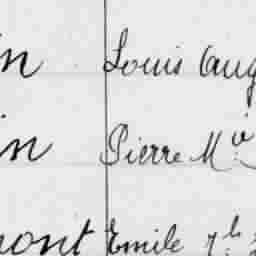 in Louis Aug
in Pierre M.ie
mont Emile